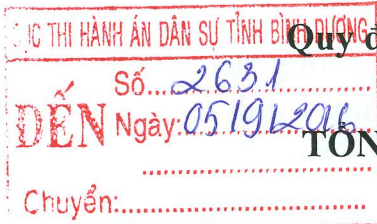 ỤC THI HÀNH ÁN DÂN SỰ TỈNH BÌNH DƯƠNG
Quy đ
Số...2631
ĐẾN Ngày:05/9/2016
TỔN
Chuyển: